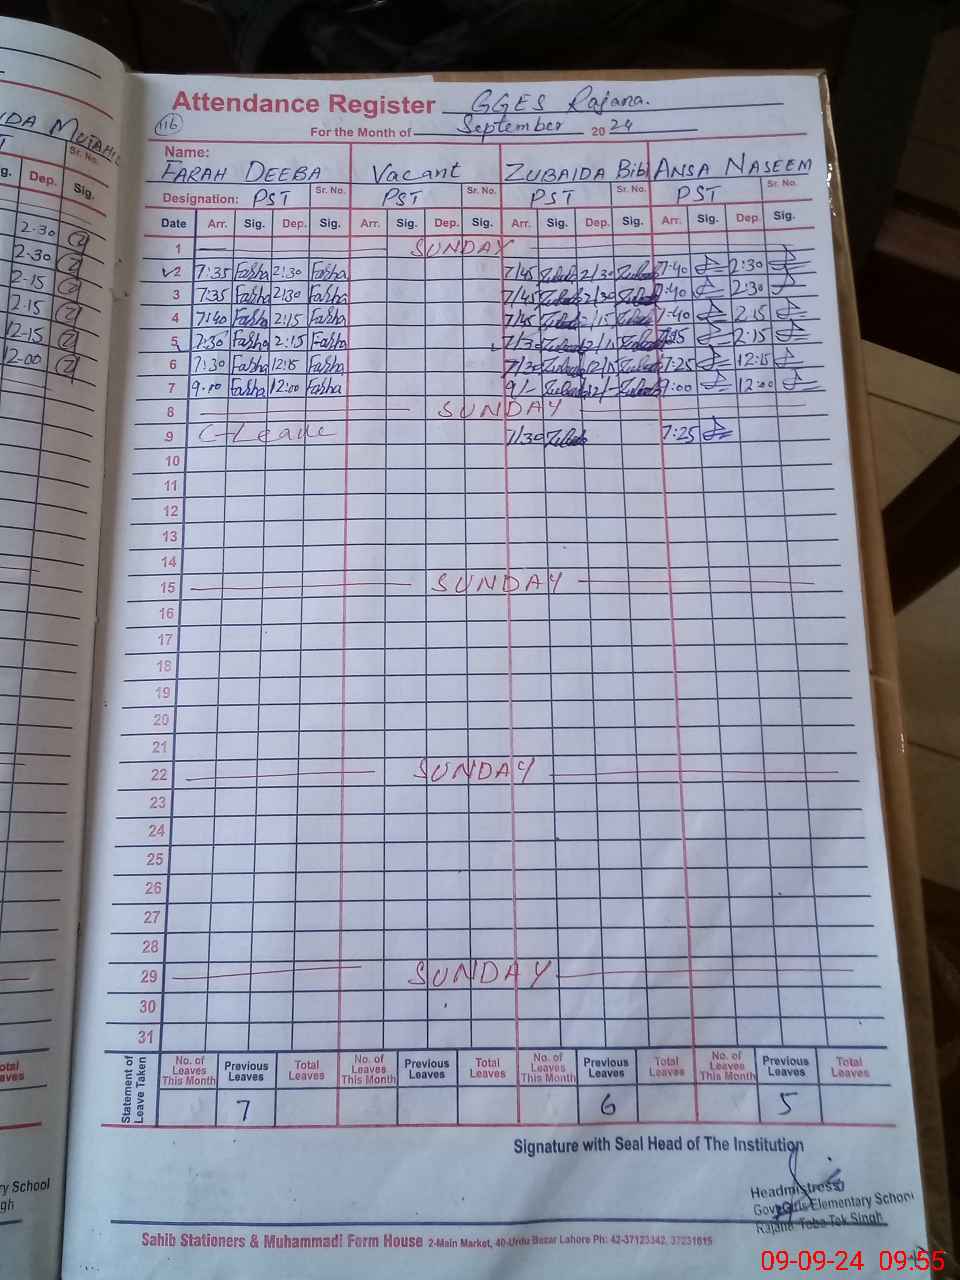 Attendance Register GGES Rajana.
116
For the Month of September 2024
Name:
FARAH DEEBA Vacant ZUBAIDA Bibi ANSA NASEEM
Designation: PST Sr. No. PST Sr. No. PST Sr. No. PST Sr. No.
Date Arr. Sig. Dep. Sig. Arr. Sig. Dep. Sig. Arr. Sig. Dep. Sig. Arr. Sig. Dep. Sig.
1 SUNDAY
2 7:35 Farha 2:30 Farha 7/45 2/30 7:40 2:30
3 7:35 Farha 2:30 Farha 7/45 2/30 7:40 2:30
4 7:40 Farha 2:15 Farha 7/45 2/15 7:40 2:15
5 7:30 Farha 2:15 Farha 7/30 2:15
6 7:30 Farha 12:15 Farha 7/30 12/15 7:25 12:15
7 9:00 Farha 12:00 Farha 9/- 12/- 9:00 12:00
8 SUNDAY
9 C-Leave 7/30 7:25
10
11
12
13
14
15 SUNDAY
16
17
18
19
20
21
22 SUNDAY
23
24
25
26
27
28
29 SUNDAY
30
31
Statement of Leave Taken
No. of Leaves This Month Previous Leaves Total Leaves No. of Leaves This Month Previous Leaves Total Leaves No. of Leaves This Month Previous Leaves Total Leaves No. of Leaves This Month Previous Leaves Total Leaves
7 6 5
Signature with Seal Head of The Institution
Headmistress
Govt Girls Elementary School
Rajana Toba Tek Singh
Sahib Stationers & Muhammadi Form House 2-Main Market, 40-Urdu Bazar Lahore Ph: 42-37123342, 37231615
09-09-24 09:55